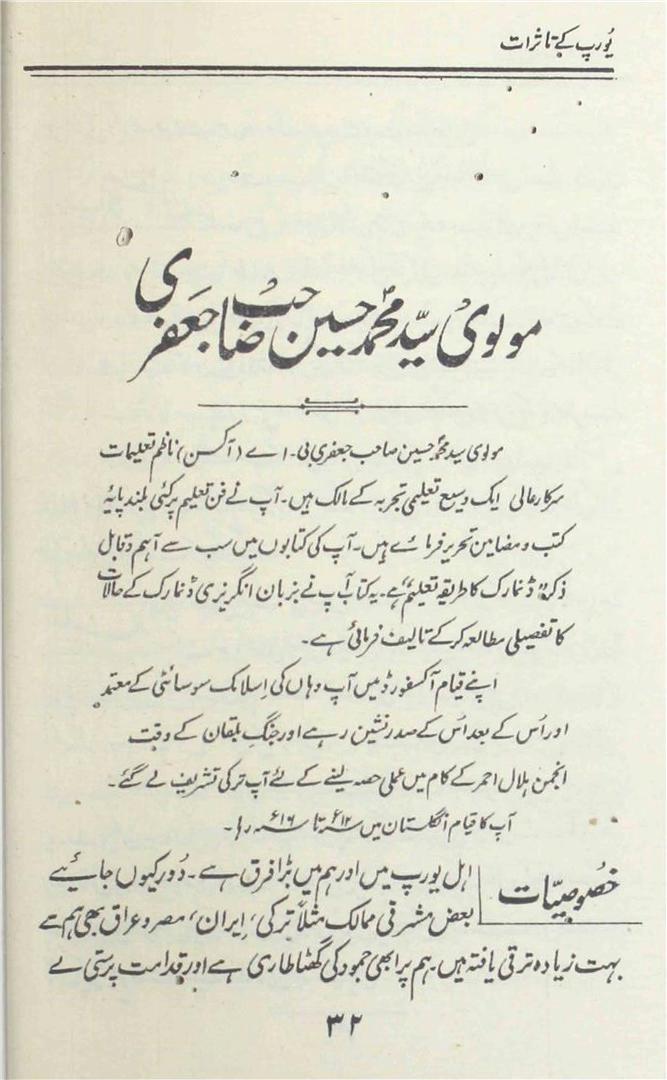 یُورپ کے تاثرات
مولوی سیّد محمّد حسین صاحب جعفری
مولوی سید محمدؐ حسین صاحب جعفری بی۔ اے (آکسن) ناظم تعلیمات
سرکار عالی ایک وسیع تعلیمی تجربہ کے مالک ہیں۔ آپ نے فن تعلیم پر کئی بلند پایہ
کتب و مضامین تحریر فرمائے ہیں۔ آپ کی کتابوں میں سب سے اہم و قابل
ذکر "ڈنمارک کا طریقہ تعلیم" ہے۔ یہ کتاب آپ نے بزبان انگریزی ڈنمارک کے حالات
کا تفصیلی مطالعہ کر کے تالیف فرمائی ہے۔
اپنے قیام آکسفورڈ میں آپ وہاں کی اسلامک سوسائٹی کے معتمد
اور اُس کے بعد اُس کے صدر نشین رہے اور جنگِ بلقان کے وقت
انجمن ہلال احمر کے کام میں عملی حصہ لینے کے لئے آپ ترکی تشریف لے گئے۔
آپ کا قیام انگلستان میں ۱۲ء تا ۱۶ء رہا۔
خصُوصیّات
اہل یورپ میں اور ہم میں بڑا فرق ہے۔ دُور کیوں جائیے
بعض مشرقی ممالک مثلاً ترکی، ایران، مصر و عراق بھی ہم سے
بہت زیادہ ترقی یافتہ ہیں۔ ہم پر ابھی جمود کی گھٹا طاری ہے اور قدامت پرستی نے
۳۲